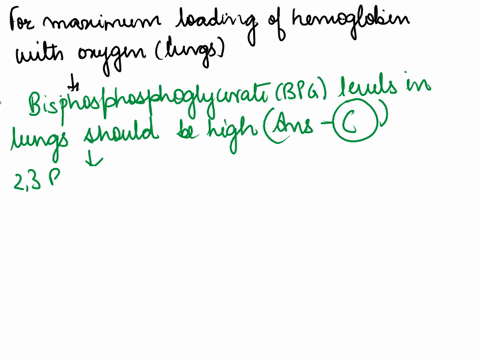 For maximum loading of hemoglobin
with oxygen (lungs)
Bisphosphosphoglycurate (BPG) levels in
lungs should be high (Ans - C)
2,3 P